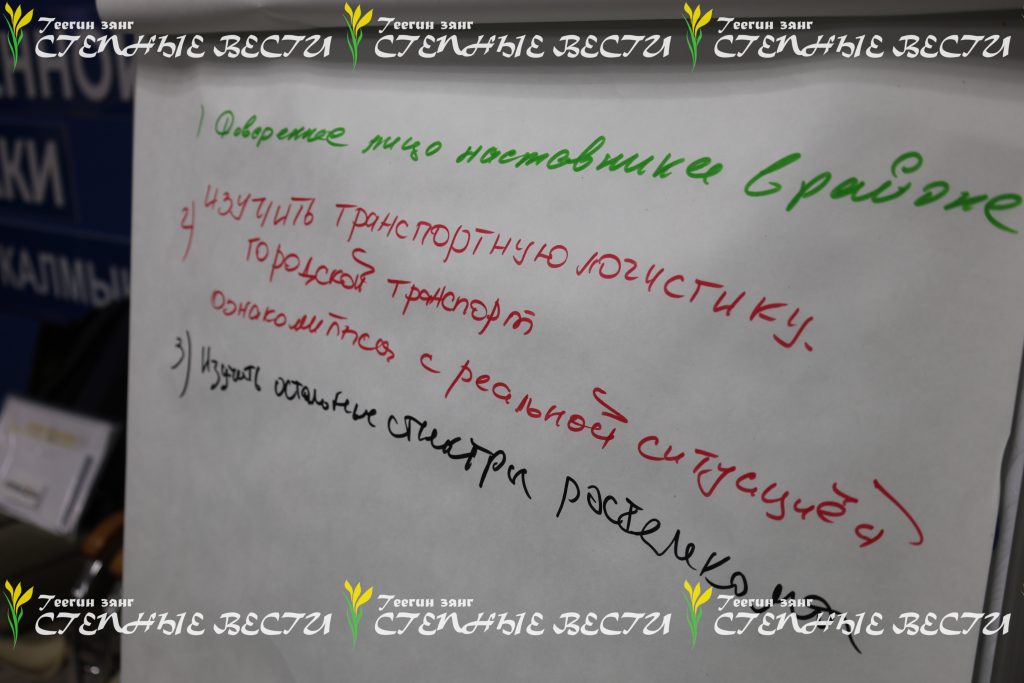 Теегин зянг
СТЕПНЫЕ ВЕСТИ
Теегин зянг
СТЕПНЫЕ ВЕСТИ
Теегин зянг
СТЕПНЫЕ ВЕСТИ
КИ
КАЛМЫ
1) Доверенное лицо наставника в районе
2) изучить транспортную логистику.
городской транспорт
ознакомиться с реальной ситуацией)
3) Изучить остальные спектры ростелекома
Теегин зянг
СТЕПНЫЕ ВЕСТИ
Теегин зянг
СТЕПНЫЕ ВЕСТИ
Теегин зянг
СТЕПНЫЕ ВЕСТИ